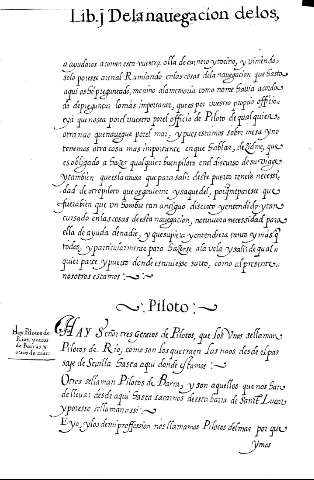 Lib. j De la nauegacion de los,
a ayudaros a comer esta vuestra olla de carnero y tocino, y viniendo
solo por este arenal Rumiando en las cosas de la nauegacion que hasta
aqui os he preguntado, me vino a la memoria como hauia
de preguntar lo mas importante, que es por vuestro proprio officio
por el officio de Piloto de qualquiera
otra nao que nauegua por el mar, y pues estamos sobre mesa y no
tenemos otra cosa mas importante en que hablar, dezidme, que
es obligado a hazer qualquier buen piloto en el discurso de su viage
y tambien que es la causa que para salir deste puerto teneis necesi-
dad de otro piloto que os
fuera bien que vn hombre tan antiguo discreto y entendido y tan
cursado en las cosas desta nauegacion, no tuuiera necessidad para
ella de ayuda de nadie, y que supiera y entendiera tanto y mas q̃
todos, y particularmente para hazerse a la vela y salir de qual
quier parte y puerto donde estuuiesse surto, como al presente
nosotros estamos :~
~: Piloto :~
Hay Pilotos de
Rio, y otros
de Barra y
otros de mar.
HAY Señor tres generos de Pilotos, que los Vnos se llaman
Pilotos de Rio, como son los que traen las naos desde el pas
saje de Seuilla hasta aqui donde estamos :~
Otros se llaman Pilotos de Barra, y son aquellos que nos han
de lleuar desde aqui hasta sacarnos desta barra de Sant Lucar
y por esto se llaman assi :~
E yo, y los de mi proffession nos llamamos Pilotos del mar por que
ymos